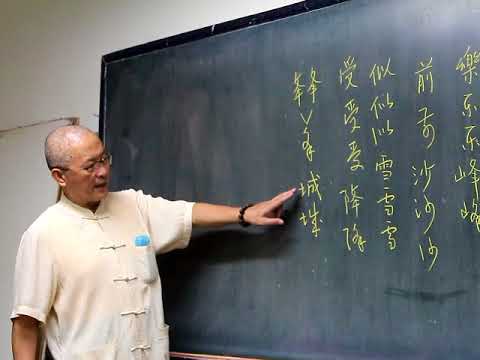 樂乐乐峰峰
前前沙沙沙
似似似雪雪雪
受受受降降
城城